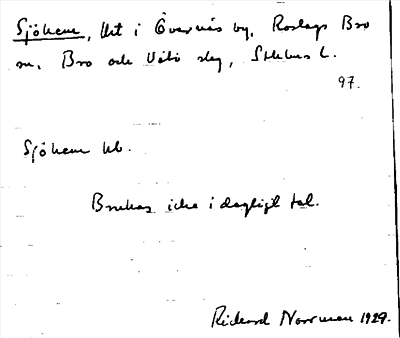 Sjöhem, Ut i Övernäs by, Roslags Bro
sn. Bro och Vätö slg, Sthlms l.
97.
Sjöhem lub.
Brukas icke i dagligt tal.
Rickard Norrman 1929.